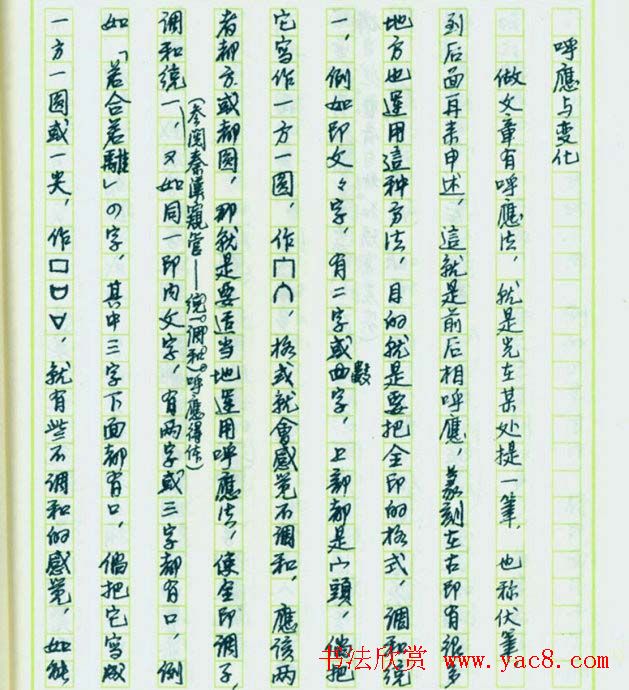 呼應与变化
做文章有呼應法，就是先在某处提一筆，也称伏筆，
到后面再来申述，這就是前后相呼應，篆刻在古印有很多
地方也運用這种方法，目的就是要把全印的格式，調和統
一，例如印文々字，有二字或數字，上部都是宀頭，倘把
它写作一方一圆，作冂∩，格式就會感觉不調和，應該两
者都方或都圆，那就是要适当地運用呼應法，使全印調子，
调和統一，又如同一印内文字，有两字或三字都有口，例
(参阅秦漢窺管——統一調和 呼應得体)
如「若合若離」の字，其中三字下面都有口，倘把它写成
一方一圆或一尖，作口▽，就有些不调和的感觉，如能
书法欣赏 www.yac8.com